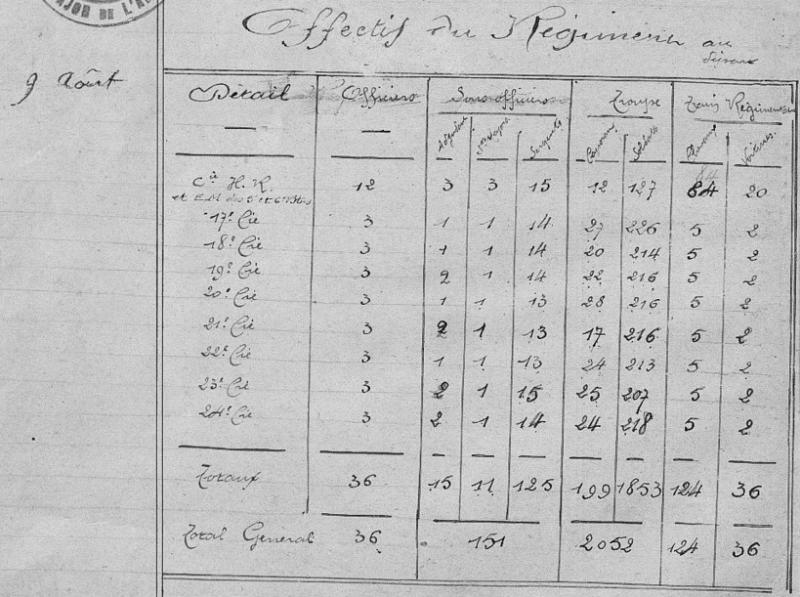 Effectif du Régiment au
départ
9 Août
Détail Officiers Sous officiers Troupe Train Régimentaire
Adjudants Sergents Caporaux Soldats Chevaux Voitures
Cie H. R. 12 3 3 15 12 127 84 20
et E.M. des 5e et 6e Btns
17e Cie 3 1 1 14 27 226 5 2
18e Cie 3 1 1 14 20 214 5 2
19e Cie 3 2 1 14 22 216 5 2
20e Cie 3 1 1 13 28 216 5 2
21e Cie 3 2 1 13 17 216 5 2
22e Cie 3 1 1 13 24 213 5 2
23e Cie 3 2 1 15 25 207 5 2
24e Cie 3 2 1 14 24 218 5 2
Totaux 36 15 11 125 199 1853 124 36
Total General 36 151 2052 124 36